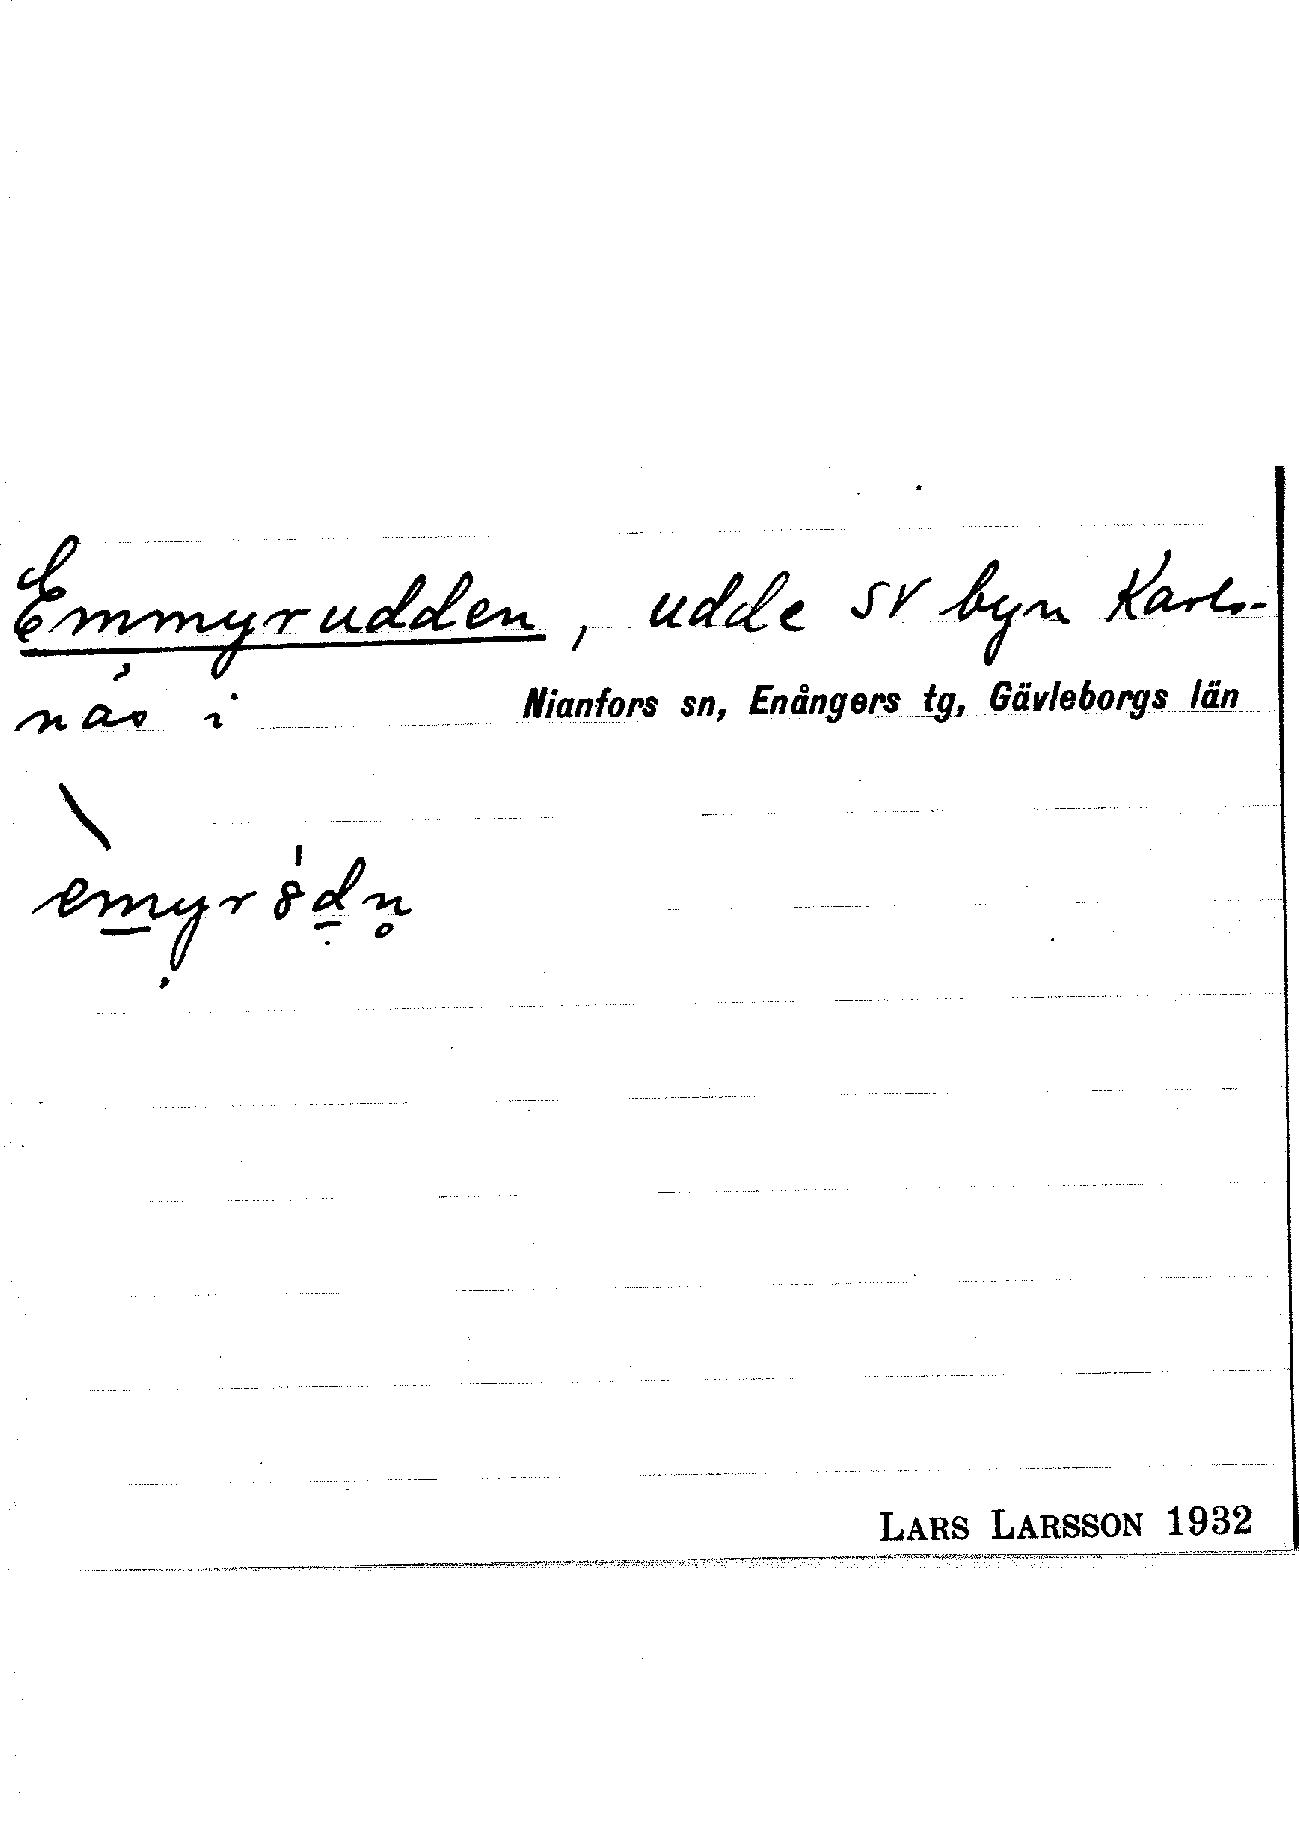 Emmyrudden, udde SV byn Karls-
näs i Nianfors sn, Enångers tg, Gävleborgs län
LARS LARSSON 1932